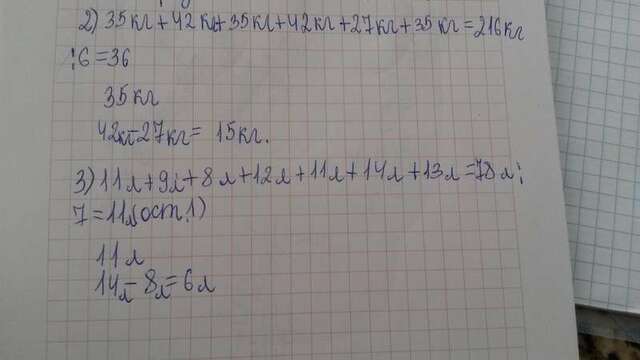 2) 35кг+42кг+35кг+42кг+27кг+35кг=216кг
:6=36
35кг
42кг-27кг= 15кг.
3) 11л+9л+8л+12л+11л+14л+13л=78л:
7=11л(ост.1)
11л
14л-8л=6л